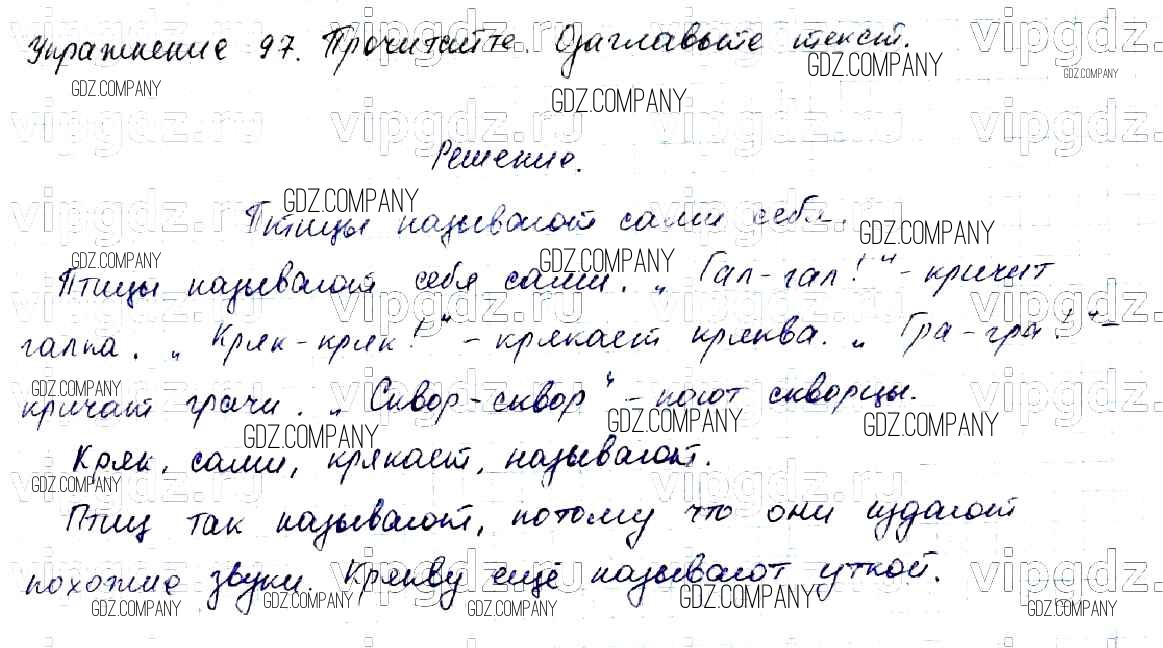 Упражнение 97. Прочитайте. Озаглавьте текст.
Решение.
Птицы называют сами себя.
Птицы называют себя сами. „Гал-гал!" - кричит
галка. „Кряк-кряк!" - крякает кряква. „Гра-гра!" -
кричат грачи. „Сквор-сквор" - поют скворцы.
Кряк, сами, крякает, называют.
Птиц так называют, потому что они издают
похожие звуки. Крякву ещё называют уткой.